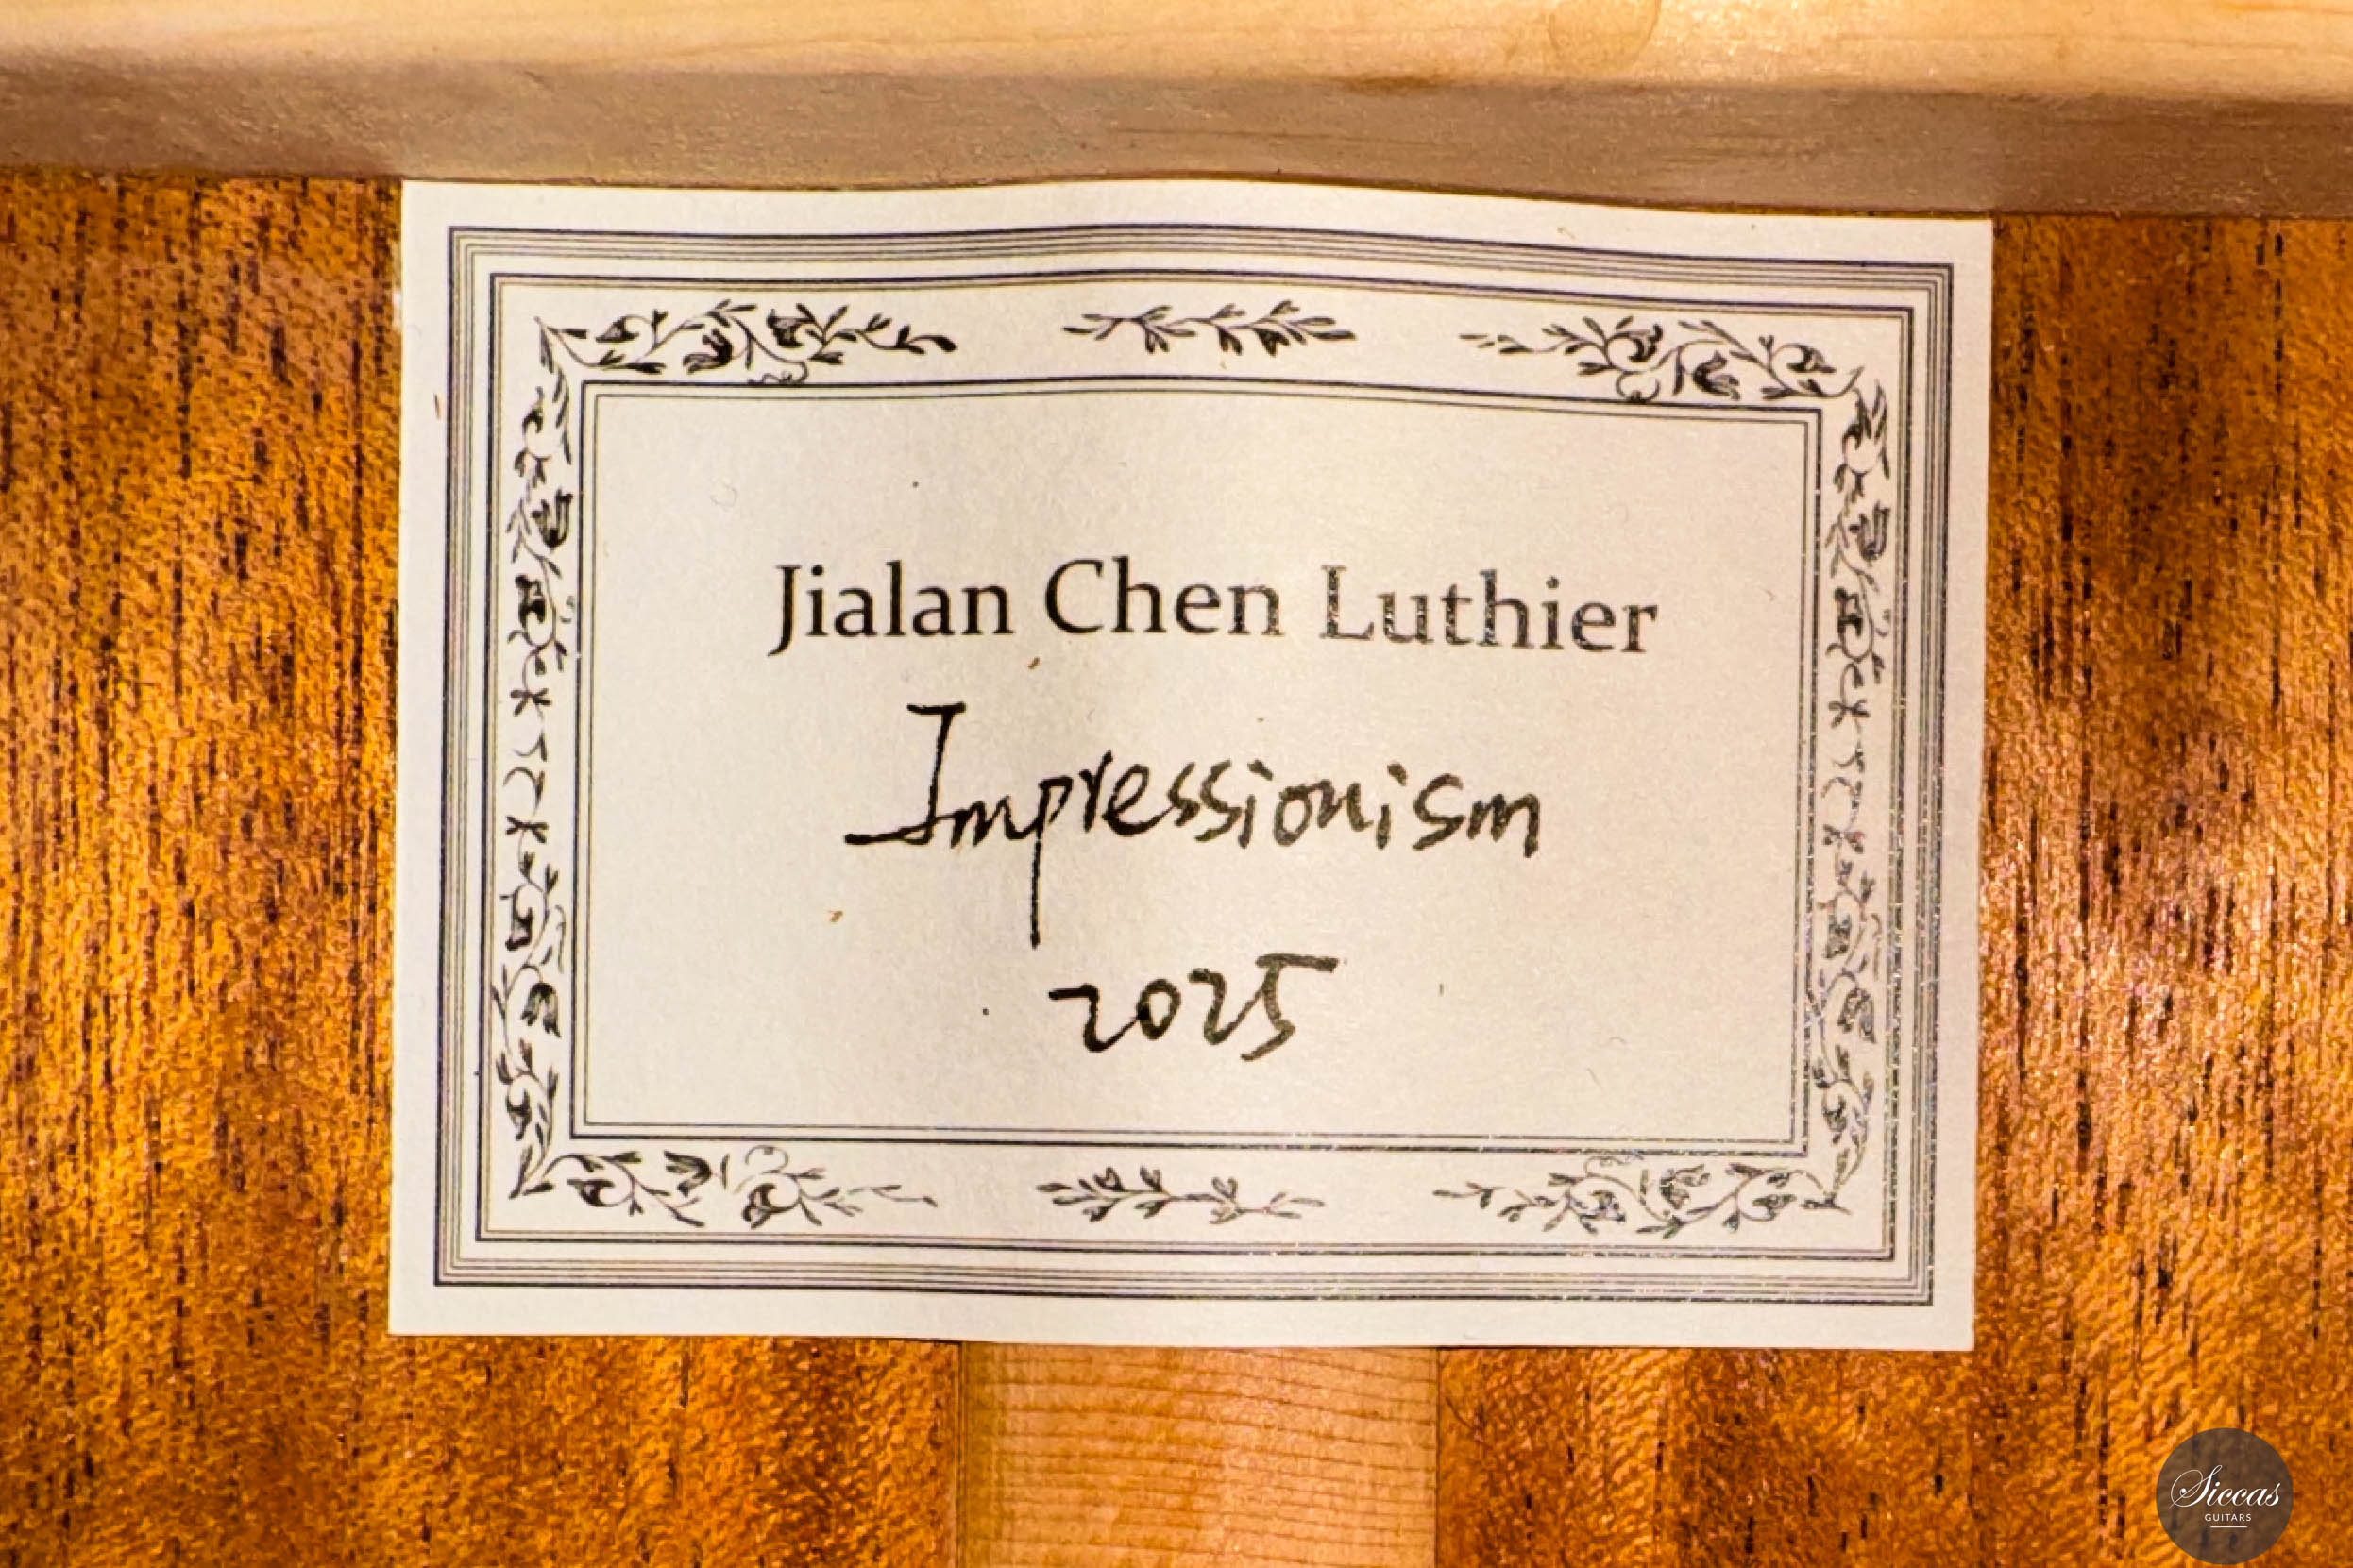 Jialan Chen Luthier
Impressionism
2025
Siccas
GUITARS